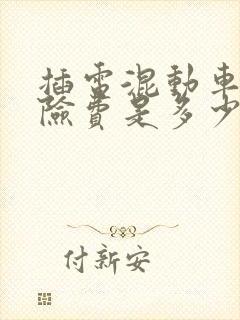 插電混動車保
險費是多少
付新安